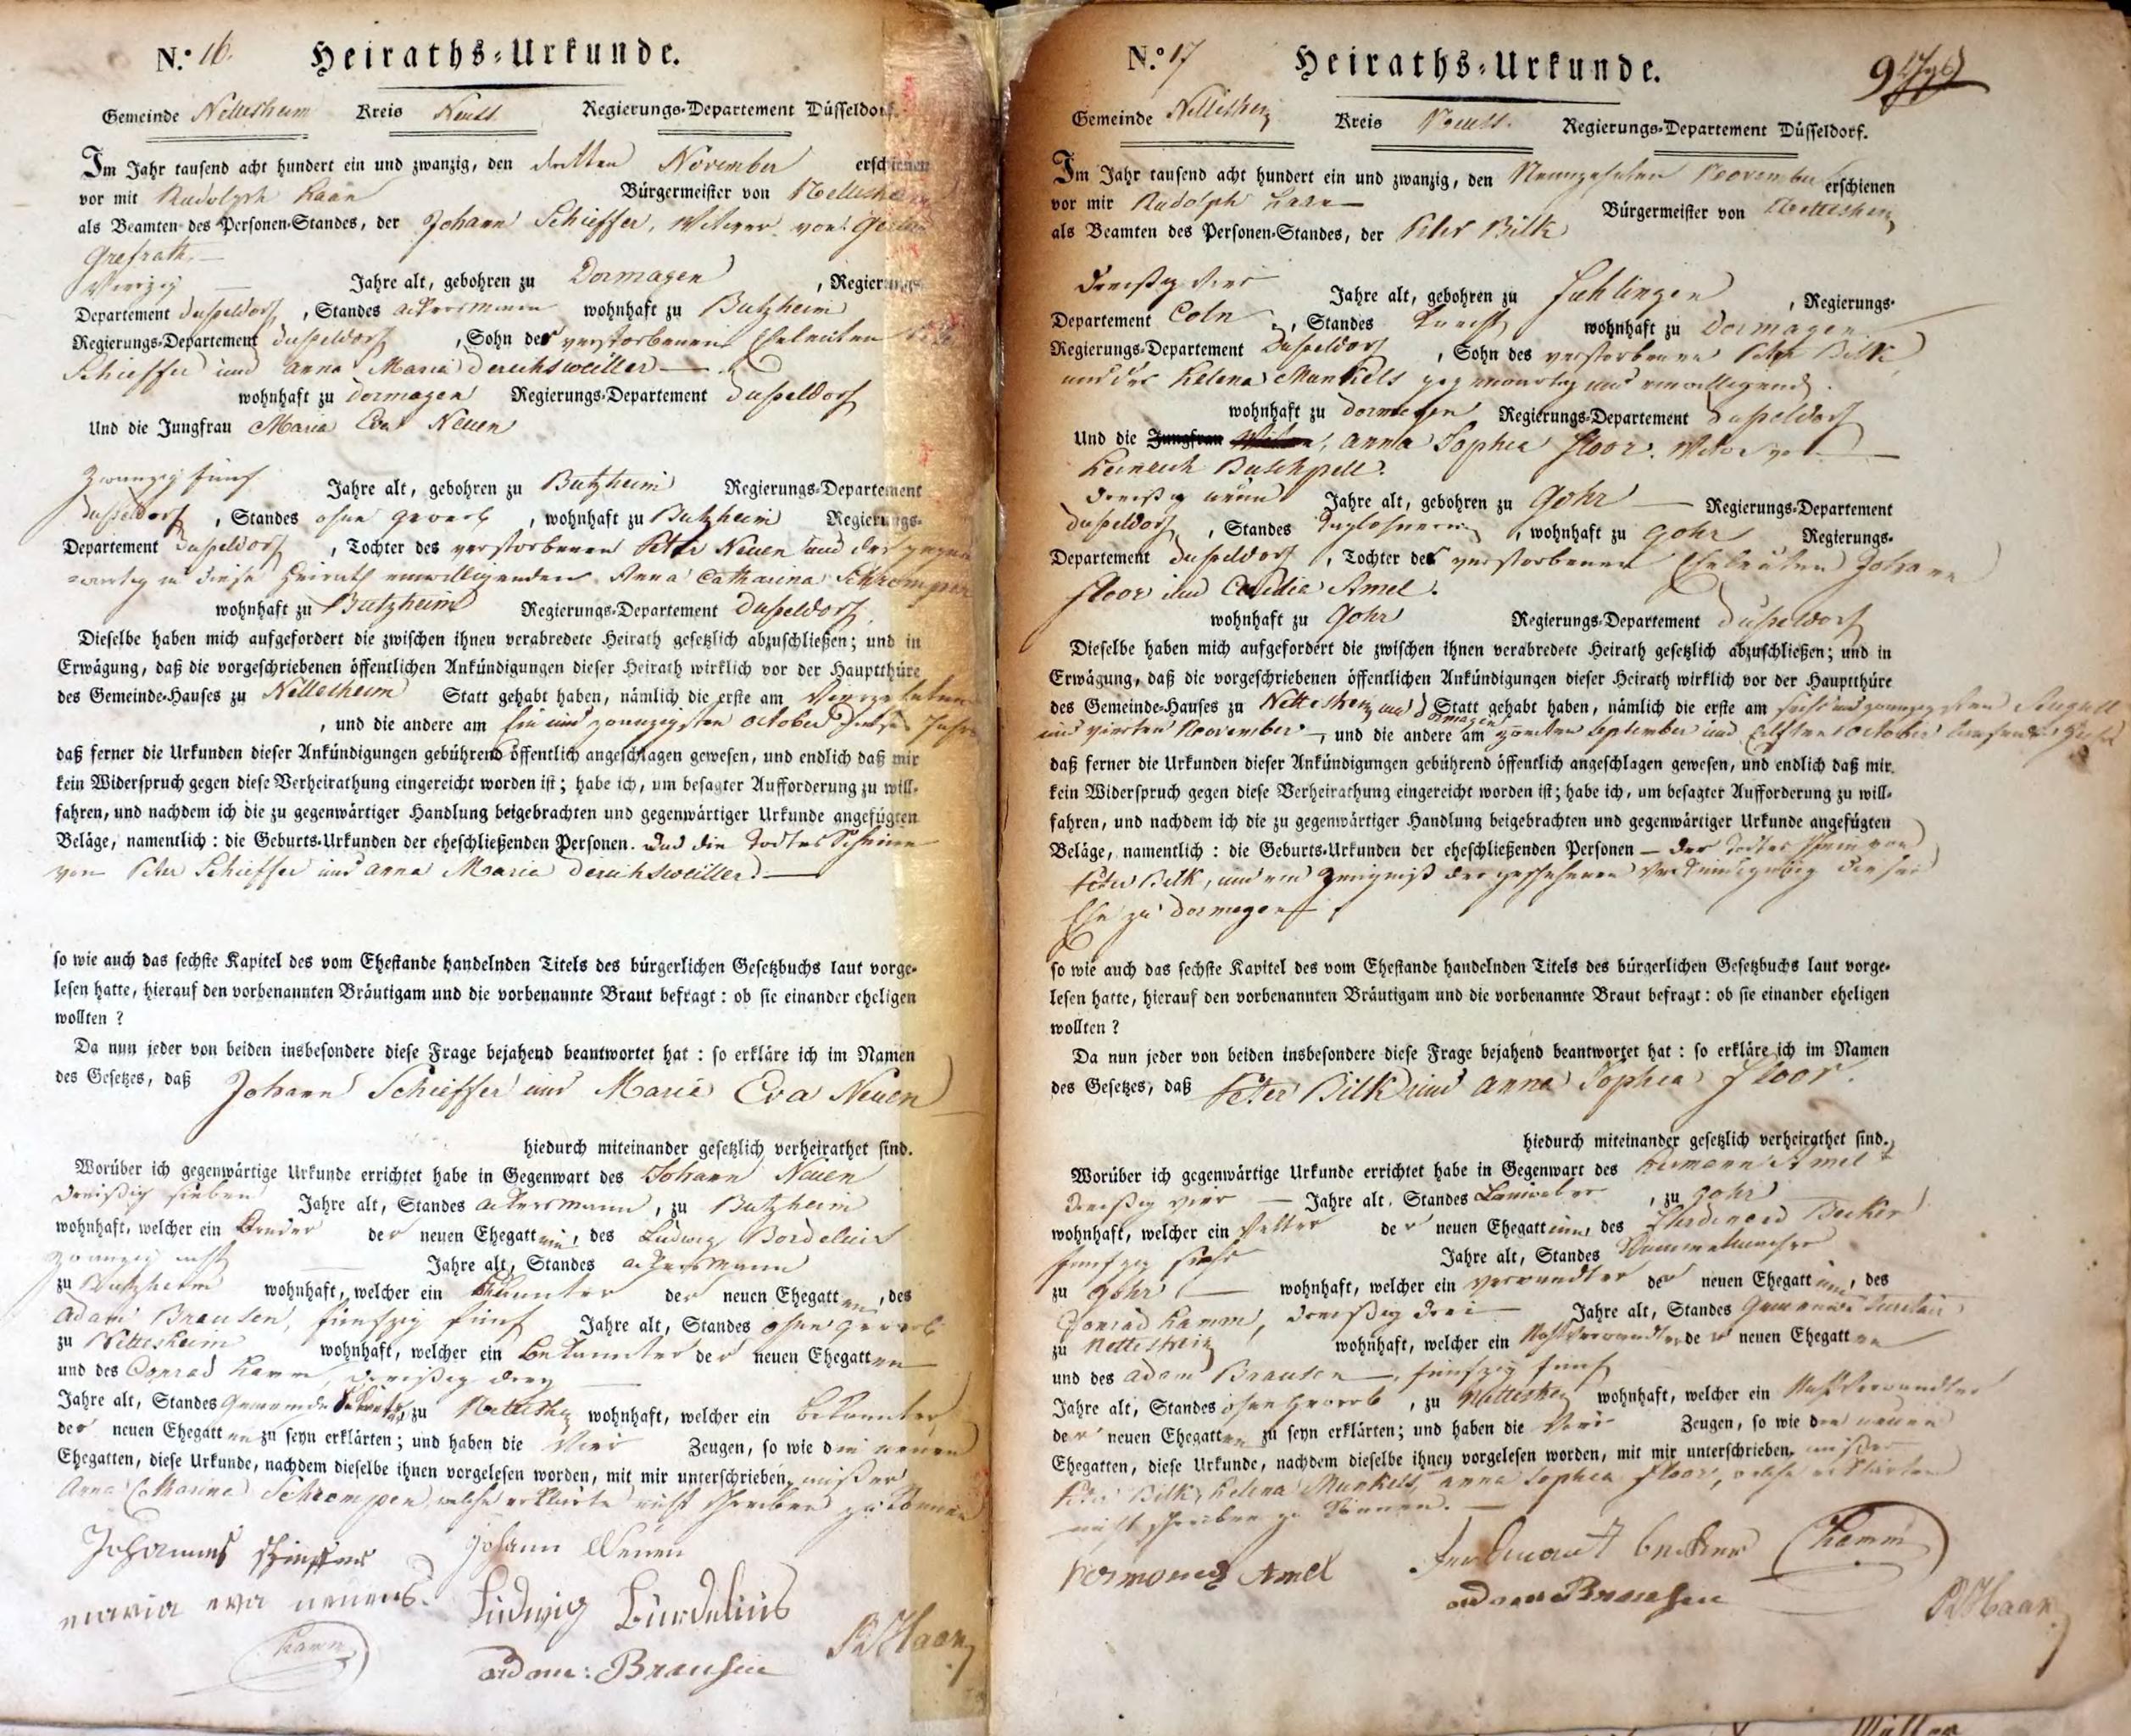 N.º 16. Heiraths-Urkunde.
Gemeinde Nettesheim Kreis Neuss Regierungs-Departement Düsseldorf.
Im Jahr tausend acht hundert ein und zwanzig, den dritten November erschienen
vor mit Rudolph Haan Bürgermeister von
als Beamten des Personen-Standes, der Johann Schieffer, Witwer von
Grefrath
Vierzig Jahre alt, gebohren zu Dormagen, Regierungs-
Departement Dusseldorf, Standes Ackersmann wohnhaft zu Butzheim
Regierungs-Departement Dusseldorf, Sohn der verstorbenen Eheleuten
Schieffer und Anna Maria Derichsweiller
wohnhaft zu Dormagen Regierungs-Departement Dusseldorf
Und die Jungfrau Maria Eva Neuen
Zwanzig fünf Jahre alt, gebohren zu Butzheim Regierungs-Departement
Dusseldorf, Standes ohne Gewerb, wohnhaft zu Butzheim Regierungs-
Departement Dusseldorf, Tochter des verstorbenen Peter Neuen und der gegen
wärtig in diese Heirath einwilligenden Anna Catharina Schrempen
wohnhaft zu Butzheim Regierungs-Departement Dusseldorf.
Dieselbe haben mich aufgefordert die zwischen ihnen verabredete Heirath gesetzlich abzuschließen; und in
Erwägung, daß die vorgeschriebenen öffentlichen Ankündigungen dieser Heirath wirklich vor der Hauptthüre
des Gemeinde-Hauses zu Nettesheim Statt gehabt haben, nämlich die erste am Vierzehnten
, und die andere am Ein und zwanzigsten October dieses Jahrs
daß ferner die Urkunden dieser Ankündigungen gebührend öffentlich angeschlagen gewesen, und endlich daß mir
kein Widerspruch gegen diese Verheirathung eingereicht worden ist; habe ich, um besagter Aufforderung zu will-
fahren, und nachdem ich die zu gegenwärtiger Handlung beigebrachten und gegenwärtiger Urkunde angefügten
Beläge, namentlich: die Geburts-Urkunden der eheschließenden Personen. und die Todtes Scheine
von Peter Schieffer und Anna Maria Derichsweiller
so wie auch das sechste Kapitel des vom Ehestande handelnden Titels des bürgerlichen Gesetzbuchs laut vorge-
lesen hatte, hierauf den vorbenannten Bräutigam und die vorbenannte Braut befragt: ob sie einander eheligen
wollten?
Da nun jeder von beiden insbesondere diese Frage bejahend beantwortet hat: so erkläre ich im Namen
des Gesetzes, daß Johann Schieffer und Maria Eva Neuen
hiedurch miteinander gesetzlich verheirathet sind.
Worüber ich gegenwärtige Urkunde errichtet habe in Gegenwart des Johann Neuen
dreißig sieben Jahre alt, Standes Ackersmann, zu Butzheim
wohnhaft, welcher ein Bruder der neuen Ehegattin, des Ludwig Bordelius
zwanzig acht Jahre alt, Standes Ackersmann
zu Butzheim wohnhaft, welcher ein Bekannter der neuen Ehegatten, des
Adam Brausen, fünfzig fünf Jahre alt, Standes ohne Gewerb
zu Nettesheim wohnhaft, welcher ein Bekannter der neuen Ehegatten
und des Conrad Hamm, dreißig drey
Jahre alt, Standes Gemeinde zu wohnhaft, welcher ein Bekannter
der neuen Ehegatten zu seyn erklärten; und haben die Vier Zeugen, so wie die neuen
Ehegatten, diese Urkunde, nachdem dieselbe ihnen vorgelesen worden, mit mir unterschrieben, außer
Anna Catharina Schrempen welche erklärte nicht schreiben zu können
Johannes Schieffer Johann Neuen
maria eva neuens. Ludwig Burdelius
Hamm adam: Brausen R Haan
N.º 17 Heiraths-Urkunde. 9
Gemeinde Kreis Neuss. Regierungs-Departement Düsseldorf.
Im Jahr tausend acht hundert ein und zwanzig, den Neunzehnten November erschienen
vor mir Rudolph Haan Bürgermeister von
als Beamten des Personen-Standes, der Peter Bilk
Dreißig vier Jahre alt, gebohren zu Fühlingen, Regierungs-
Departement Coln, Standes Knecht wohnhaft zu Dormagen
Regierungs-Departement Dusseldorf, Sohn des verstorbenen Peter Bilk
und der Helena Munkels gegenwärtig und einwilligend.
wohnhaft zu Dormagen Regierungs-Departement Dusseldorf
Und die Jungfrau Anna Sophia Floor. Witwe von
Heinrich Buschpell.
dreißig neun Jahre alt, gebohren zu Gohr Regierungs-Departement
Dusseldorf, Standes Taglöhnerin, wohnhaft zu Gohr Regierungs-
Departement Dusseldorf, Tochter der verstorbenen Eheleuten Johann
Floor und Amel.
wohnhaft zu Gohr Regierungs-Departement Dusseldorf
Dieselbe haben mich aufgefordert die zwischen ihnen verabredete Heirath gesetzlich abzuschließen; und in
Erwägung, daß die vorgeschriebenen öffentlichen Ankündigungen dieser Heirath wirklich vor der Hauptthüre
des Gemeinde-Hauses zu und Dormagen Statt gehabt haben, nämlich die erste am sechs und zwanzigsten August
und vierten November, und die andere am zweiten September und Elften October
daß ferner die Urkunden dieser Ankündigungen gebührend öffentlich angeschlagen gewesen, und endlich daß mir
kein Widerspruch gegen diese Verheirathung eingereicht worden ist; habe ich, um besagter Aufforderung zu will-
fahren, und nachdem ich die zu gegenwärtiger Handlung beigebrachten und gegenwärtiger Urkunde angefügten
Beläge, namentlich: die Geburts-Urkunden der eheschließenden Personen – der Todtes Schein von
Peter Bilk, und ein Zeugniß der geschehenen Verkündigung dieser
Ehe zu Dormagen
so wie auch das sechste Kapitel des vom Ehestande handelnden Titels des bürgerlichen Gesetzbuchs laut vorge-
lesen hatte, hierauf den vorbenannten Bräutigam und die vorbenannte Braut befragt: ob sie einander eheligen
wollten?
Da nun jeder von beiden insbesondere diese Frage bejahend beantwortet hat: so erkläre ich im Namen
des Gesetzes, daß Peter Bilk und Anna Sophia Floor.
hiedurch miteinander gesetzlich verheirathet sind.
Worüber ich gegenwärtige Urkunde errichtet habe in Gegenwart des Hermann Amel
dreißig vier Jahre alt, Standes Leinweber, zu Gohr
wohnhaft, welcher ein Vetter der neuen Ehegattinn, des Ferdinand Becker
fünfzig sechs Jahre alt, Standes
zu Gohr wohnhaft, welcher ein Verwandter der neuen Ehegattinn, des
Conrad Hamm, dreißig drei Jahre alt, Standes Gemeinde
zu wohnhaft, welcher ein Nichtverwandter der neuen Ehegatten
und des Adam Brausen, fünfzig fünf
Jahre alt, Standes ohne Gewerb, zu wohnhaft, welcher ein Nichtverwandter
der neuen Ehegatten zu seyn erklärten; und haben die Vier Zeugen, so wie die neuen
Ehegatten, diese Urkunde, nachdem dieselbe ihnen vorgelesen worden, mit mir unterschrieben, außer
Peter Bilk, Helena Munkels, Anna Sophia Floor, welche erklärten
nicht schreiben zu können.
Hermann Amel Ferdinant becker Hamm
adam Brausen R Haan